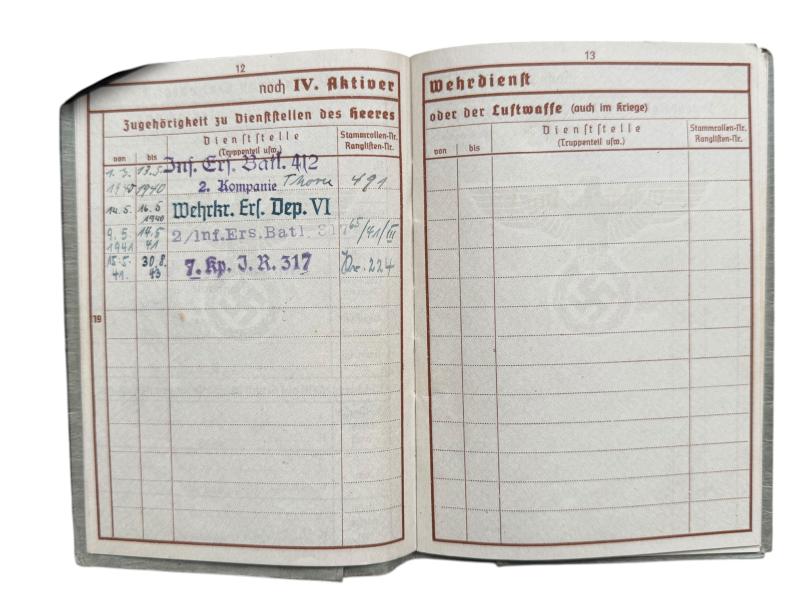 12
noch IV. Aktiver
Zugehörigkeit zu Dienststellen des Heeres
von
bis
Dienststelle
(Truppenteil usw.)
Stammrollen-Nr.
Ranglisten-Nr.
1. 3. 13.5. Inf. Ers. Batl. 412
1940 1940 2. Kompanie Thorn 491
14.5. 16.5 Wehrkr. Ers. Dep. VI
1940
9.5. 14.5 2/Inf.Ers.Batl. 317 65/41/III
1941 41
15.5. 30.8. 7. Kp. J. R. 317 224
41. 43
19
13
Wehrdienst
oder der Luftwaffe (auch im Kriege)
von
bis
Dienststelle
(Truppenteil usw.)
Stammrollen-Nr.
Ranglisten-Nr.